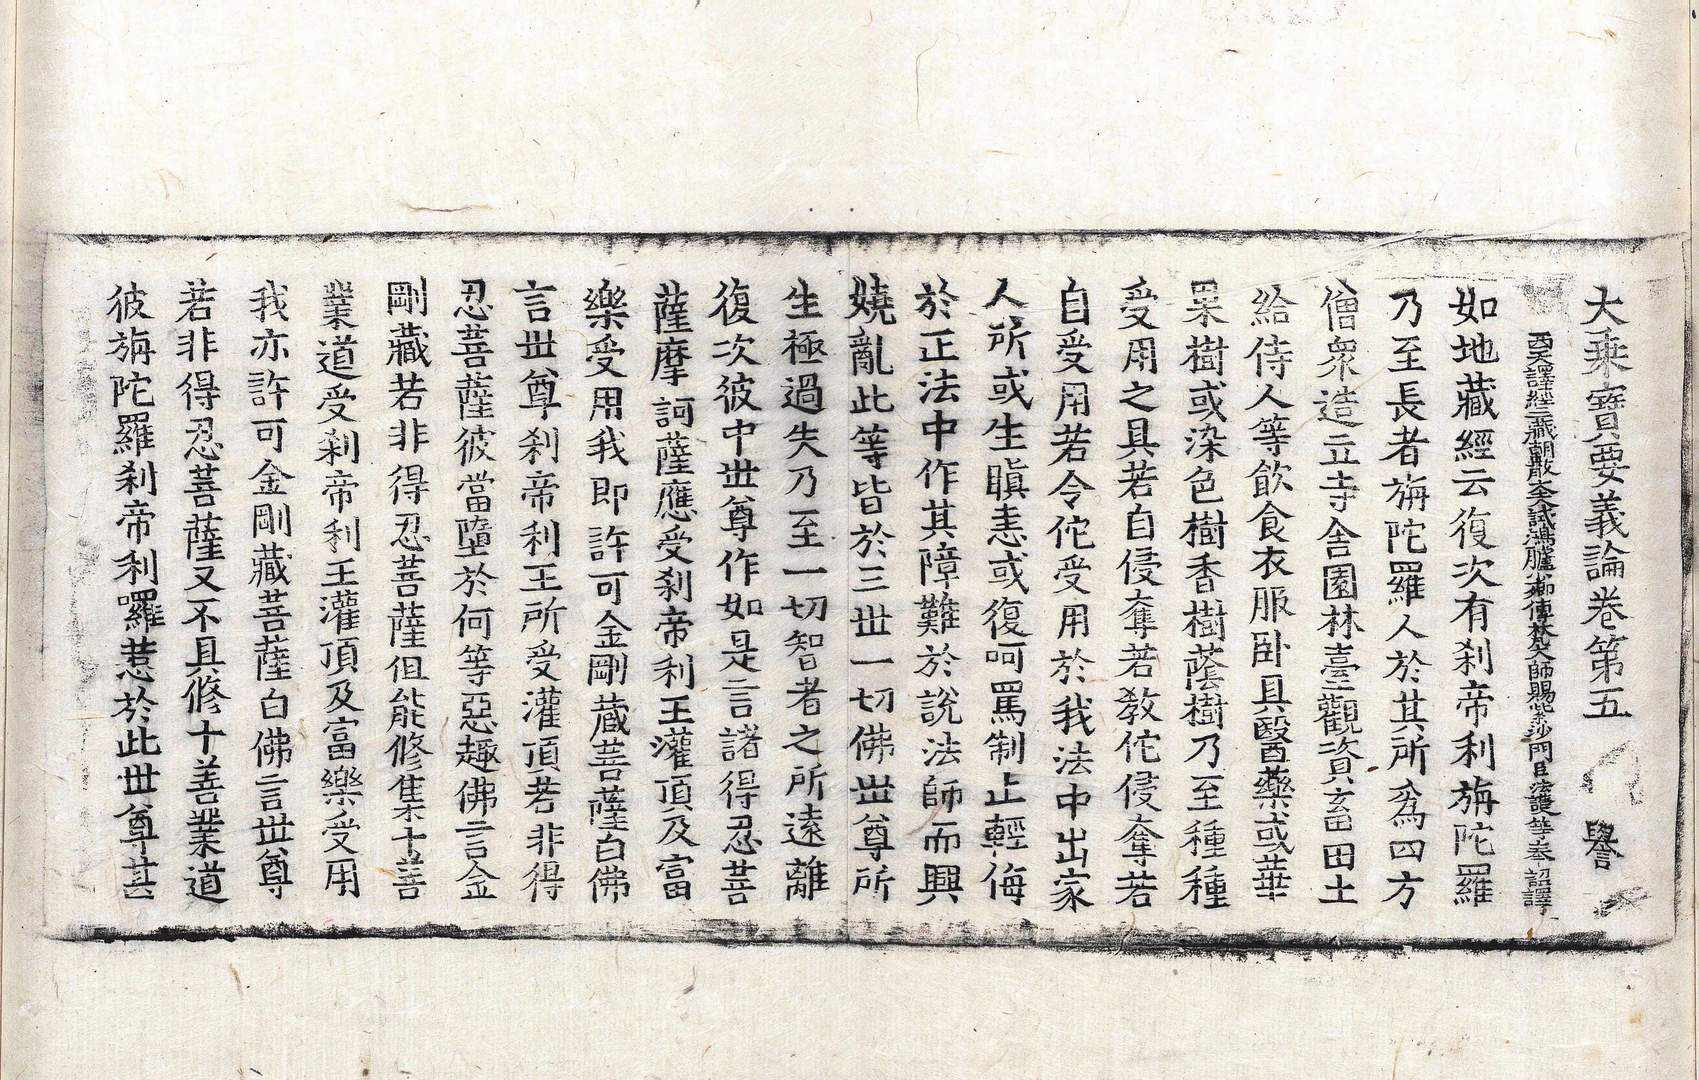 大乗寳要義論卷第五 譽
西天譯經三藏朝散大夫試鴻臚少卿傳梵大師賜紫沙門臣法護等奉 詔譯
如地藏經云復次有刹帝利旃陀羅
乃至長者旃陀羅人於其所爲四方
僧衆造立寺舍園林臺觀資畜田土
給侍人等飲食衣服卧具醫藥或華
果樹或染色樹香樹蔭樹乃至種種
受用之具若自侵奪若教佗侵奪若
自受用若令佗受用於我法中出家
人所或生瞋恚或復呵罵制止輕侮
於正法中作其障難於說法師而興
嬈亂此等皆於三世一切佛世尊所
生極過失乃至一切智者之所遠離
復次彼中世尊作如是言諸得忍菩
薩摩訶薩應受刹帝利王灌頂及富
樂受用我即許可金剛藏菩薩白佛
言世尊刹帝利王所受灌頂若非得
忍菩薩彼當墮於何等惡趣佛言金
剛藏若非得忍菩薩但能修集十善
業道受刹帝利王灌頂及富樂受用
我亦許可金剛藏菩薩白佛言世尊
若非得忍菩薩又不具修十善業道
彼旃陀羅刹帝利囉惹於此世尊其